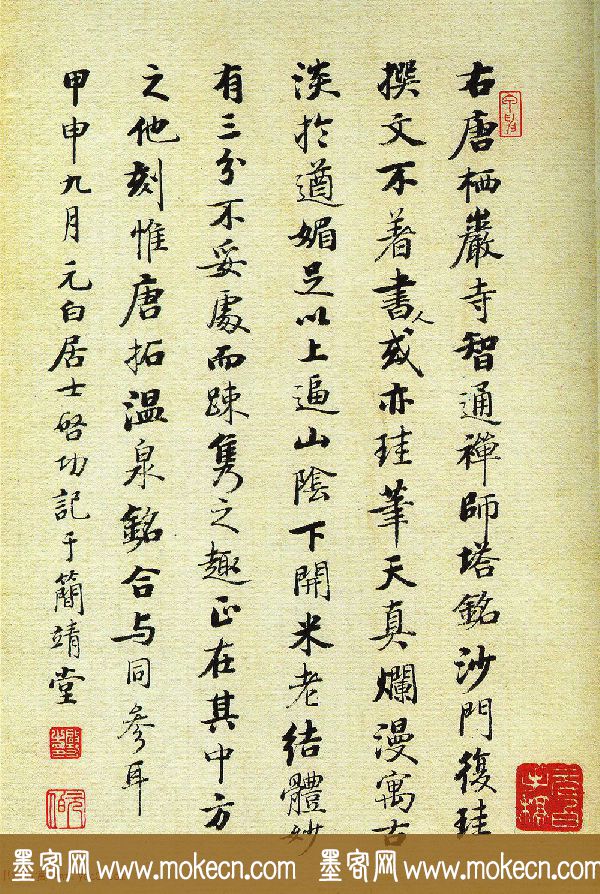 右唐栖巖寺智通禪師塔銘沙門復珪
撰文不著書人或亦珪筆天真爛漫寓古
淡於遒媚足以上逼山陰下開米老結體妙
有三分不妥處而踈雋之趣正在其中方
之他刻惟唐拓温泉銘合与同參耳
甲申九月元白居士啓功記于簡靖堂
墨客网 www.mokecn.com 墨客网 www.mokecn.com